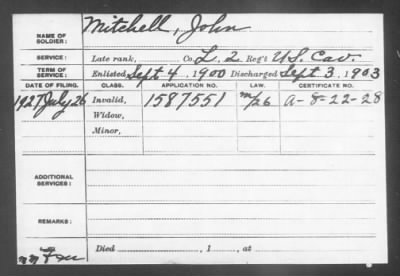 NAME OF SOLDIER: Mitchell, John
SERVICE: Late rank, Co. L, 2 Reg't U.S. Cav.
TERM OF SERVICE: Enlisted Sept 4, 1900 Discharged Sept 3, 1903
DATE OF FILING. CLASS. APPLICATION NO. LAW. CERTIFICATE NO.
1927 July 26 Invalid, 1587551 m/26 A-8-22-28
Widow,
Minor,
ADDITIONAL SERVICES:
REMARKS:
Died , 1 , at